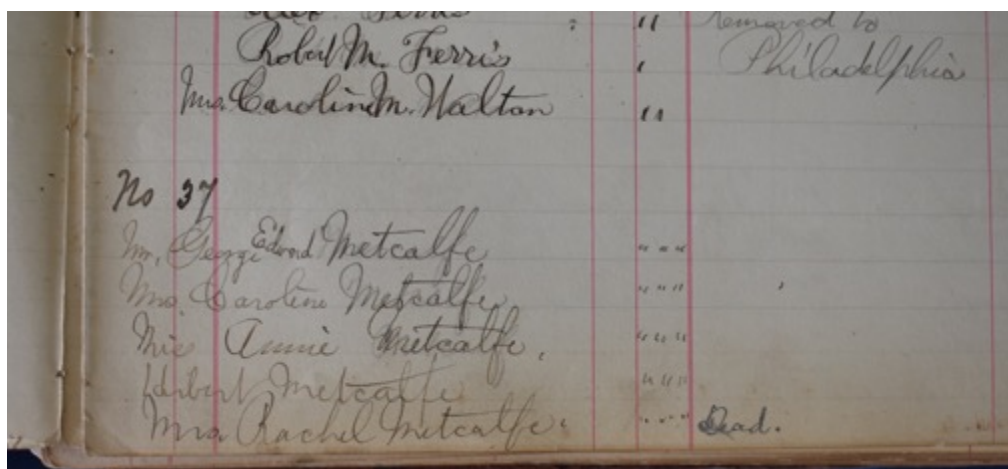 Ferris : " removed to
Robert M. Ferris ' Philadelphia
Mrs. Caroline M. Walton "
No 37
Mr. George Edward Metcalfe " " "
Mrs. Caroline Metcalfe " " "
Mis Annie Metcalfe. " " "
Herbert Metcalfe " " "
Mrs. Rachel Metcalfe. " " " Dead.